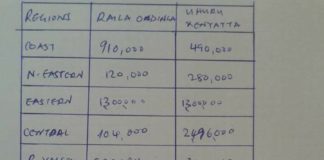 REGIONS RAILA ODDINGA UHURU KENYATTA
COAST 910,000 490,000
N-EASTERN 120,000 280,000
EASTERN 1300000 1300000
CENTRAL 104,000 2496000